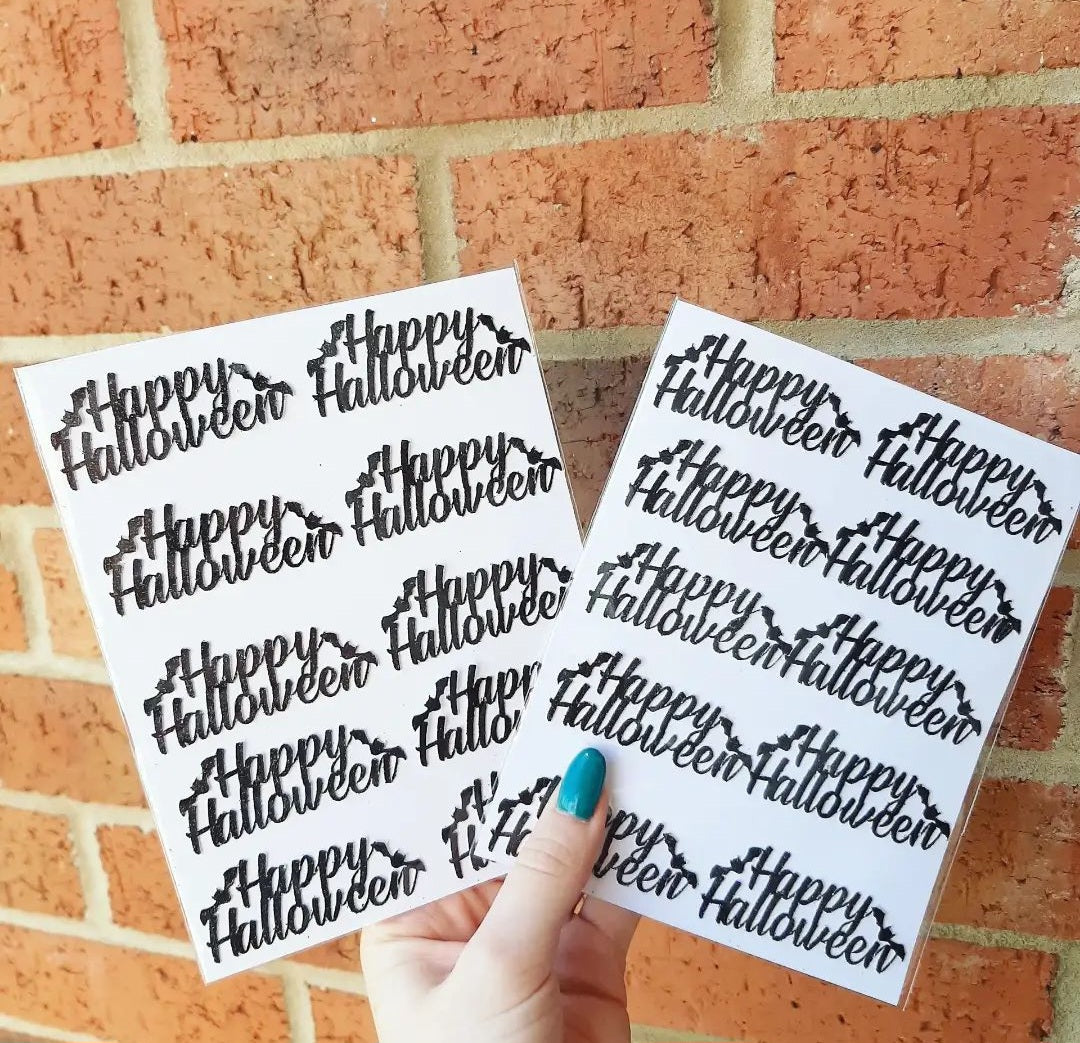 Happy
Halloween
Happy
Halloween
Happy
Halloween
Happy
Halloween
Happy
Halloween
Happy
Hallowee
Happy
Halloween
Happ
Hallo
Happy
Halloween
Happy
Halloween
Happy
Halloween
Happy
Halloween
Happy
Halloween
Happy
Halloween
Happy
Halloween
Happy
Halloween
Happy
Halloween
ppy
ween
Happy
Halloween